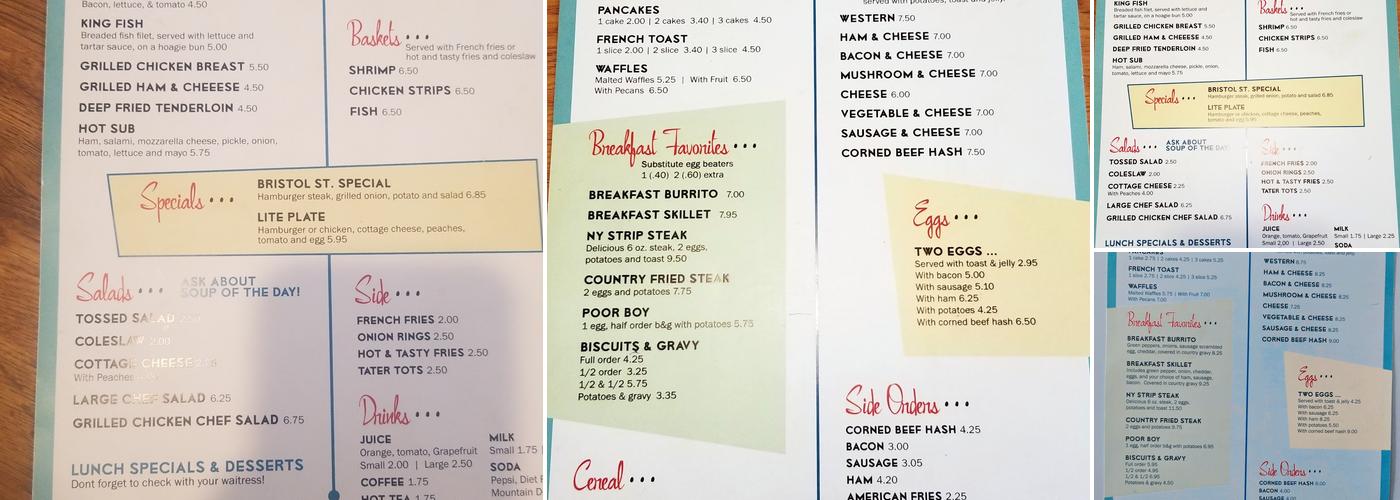 Bacon, lettuce, & tomato 4.50
KING FISH
Breaded fish filet, served with lettuce and
tartar sauce, on a hoagie bun 5.00
GRILLED CHICKEN BREAST 5.50
GRILLED HAM & CHEEESE 4.50
DEEP FRIED TENDERLOIN 4.50
HOT SUB
Ham, salami, mozzarella cheese, pickle, onion,
tomato, lettuce and mayo 5.75
Baskets •••
Served with French fries or
hot and tasty fries and coleslaw
SHRIMP 6.50
CHICKEN STRIPS 6.50
FISH 6.50
Specials •••
BRISTOL ST. SPECIAL
Hamburger steak, grilled onion, potato and salad 6.85
LITE PLATE
Hamburger or chicken, cottage cheese, peaches,
tomato and egg 5.95
Salads •••
ASK ABOUT
SOUP OF THE DAY!
TOSSED SALAD 2.50
COLESLAW 2.00
COTTAGE CHEESE 2.25
With Peaches
LARGE CHEF SALAD 6.25
GRILLED CHICKEN CHEF SALAD 6.75
LUNCH SPECIALS & DESSERTS
Dont forget to check with your waitress!
Side •••
FRENCH FRIES 2.00
ONION RINGS 2.50
HOT & TASTY FRIES 2.50
TATER TOTS 2.50
Drinks •••
JUICE
Orange, tomato, Grapefruit
Small 2.00 | Large 2.50
COFFEE 1.75
HOT TEA 1.75
MILK
Small 1.75 |
SODA
Pepsi, Diet
Mountain D
PANCAKES
1 cake 2.00 | 2 cakes 3.40 | 3 cakes 4.50
FRENCH TOAST
1 slice 2.00 | 2 slice 3.40 | 3 slice 4.50
WAFFLES
Malted Waffles 5.25 | With Fruit 6.50
With Pecans 6.50
Breakfast Favorites •••
Substitute egg beaters
1 (.40) 2 (.60) extra
BREAKFAST BURRITO 7.00
BREAKFAST SKILLET 7.95
NY STRIP STEAK
Delicious 6 oz. steak, 2 eggs,
potatoes and toast 9.50
COUNTRY FRIED STEAK
2 eggs and potatoes 7.75
POOR BOY
1 egg, half order b&g with potatoes 5.75
BISCUITS & GRAVY
Full order 4.25
1/2 order 3.25
1/2 & 1/2 5.75
Potatoes & gravy 3.35
Cereal •••
WESTERN 7.50
HAM & CHEESE 7.00
BACON & CHEESE 7.00
MUSHROOM & CHEESE 7.00
CHEESE 6.00
VEGETABLE & CHEESE 7.00
SAUSAGE & CHEESE 7.00
CORNED BEEF HASH 7.50
Eggs •••
TWO EGGS ...
Served with toast & jelly 2.95
With bacon 5.00
With sausage 5.10
With ham 6.25
With potatoes 4.25
With corned beef hash 6.50
Side Orders •••
CORNED BEEF HASH 4.25
BACON 3.00
SAUSAGE 3.05
HAM 4.20
AMERICAN FRIES 2.25
KING FISH
Breaded fish filet, served with lettuce and
tartar sauce, on a hoagie bun 5.00
GRILLED CHICKEN BREAST 5.50
GRILLED HAM & CHEEESE 4.50
DEEP FRIED TENDERLOIN 4.50
HOT SUB
Ham, salami, mozzarella cheese, pickle, onion,
tomato, lettuce and mayo 5.75
Baskets •••
Served with French fries or
hot and tasty fries and coleslaw
SHRIMP 6.50
CHICKEN STRIPS 6.50
FISH 6.50
Specials •••
BRISTOL ST. SPECIAL
Hamburger steak, grilled onion, potato and salad 6.85
LITE PLATE
Hamburger or chicken, cottage cheese, peaches,
tomato and egg 5.95
Salads •••
ASK ABOUT
SOUP OF THE DAY
TOSSED SALAD 2.50
COLESLAW 2.00
COTTAGE CHEESE 2.25
With Peaches 4.00
LARGE CHEF SALAD 6.25
GRILLED CHICKEN CHEF SALAD 6.75
LUNCH SPECIALS & DESSERTS
Side •••
FRENCH FRIES 2.00
ONION RINGS 2.50
HOT & TASTY FRIES 2.50
TATER TOTS 2.50
Drinks •••
JUICE
Orange, tomato, Grapefruit
Small 2.00 | Large 2.50
MILK
Small 1.75 | Large 2.25
SODA
PANCAKES
1 cake 2.75 | 2 cakes 4.25 | 3 cakes 5.25
FRENCH TOAST
1 slice 2.75 | 2 slice 4.25 | 3 slice 5.25
WAFFLES
Malted Waffles 5.75 | With Fruit 7.00
With Pecans 7.00
Breakfast Favorites •••
BREAKFAST BURRITO
Green peppers, onions, sausage scrambled
egg, cheddar, covered in country gravy 8.25
BREAKFAST SKILLET
Includes green pepper, onion, cheddar,
eggs, and your choice of ham, sausage,
bacon. Covered in country gravy 9.25
NY STRIP STEAK
Delicious 6 oz. steak, 2 eggs,
potatoes and toast 11.50
COUNTRY FRIED STEAK
2 eggs and potatoes 9.75
POOR BOY
1 egg, half order b&g with potatoes 6.95
BISCUITS & GRAVY
Full order 5.95
1/2 order 4.95
1/2 & 1/2 6.95
Potatoes & gravy 4.50
WESTERN 8.75
HAM & CHEESE 8.25
BACON & CHEESE 8.25
MUSHROOM & CHEESE 8.25
CHEESE 7.25
VEGETABLE & CHEESE 8.25
SAUSAGE & CHEESE 8.25
CORNED BEEF HASH 9.00
Eggs •••
TWO EGGS ...
Served with toast & jelly 4.25
With bacon 6.25
With sausage 6.25
With ham 8.25
With potatoes 6.25
With corned beef hash 9.00
Side Orders •••
CORNED BEEF HASH 6.00
BACON 4.00